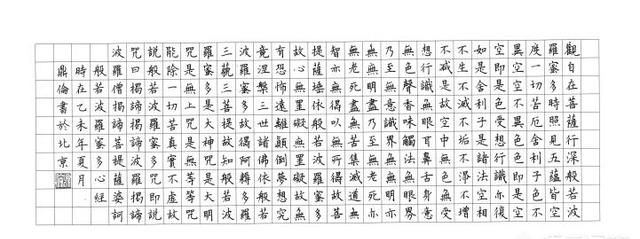 觀自在菩薩行深般若波
羅蜜多時照見五蘊皆空
度一切苦厄舍利子色不
異空空不異色色即是空
空即是色受想行識亦復
如是舍利子是諸法空相
不生不滅不垢不淨不增
不減是故空中無色無受
想行識無眼耳鼻舌身意
無色聲香味觸法無眼界
乃至無意識界無無明亦
無無明盡乃至無老死亦
無老死盡無苦集滅道無
智亦無得以無所得故菩
提薩埵依般若波羅蜜多
故心無罣礙無罣礙故無
有恐怖遠離顛倒夢想究
竟涅槃三世諸佛依般若
波羅蜜多故得阿耨多羅
三藐三菩提故知般若波
羅蜜多是大神咒是大明
咒是無上咒是無等等咒
能除一切苦真實不虛故
說般若波羅蜜多咒即說
咒曰揭諦揭諦波羅揭諦
波羅僧揭諦菩提薩婆訶
般若波羅蜜多心經
時在乙未年夏月
鼎倫書於北京